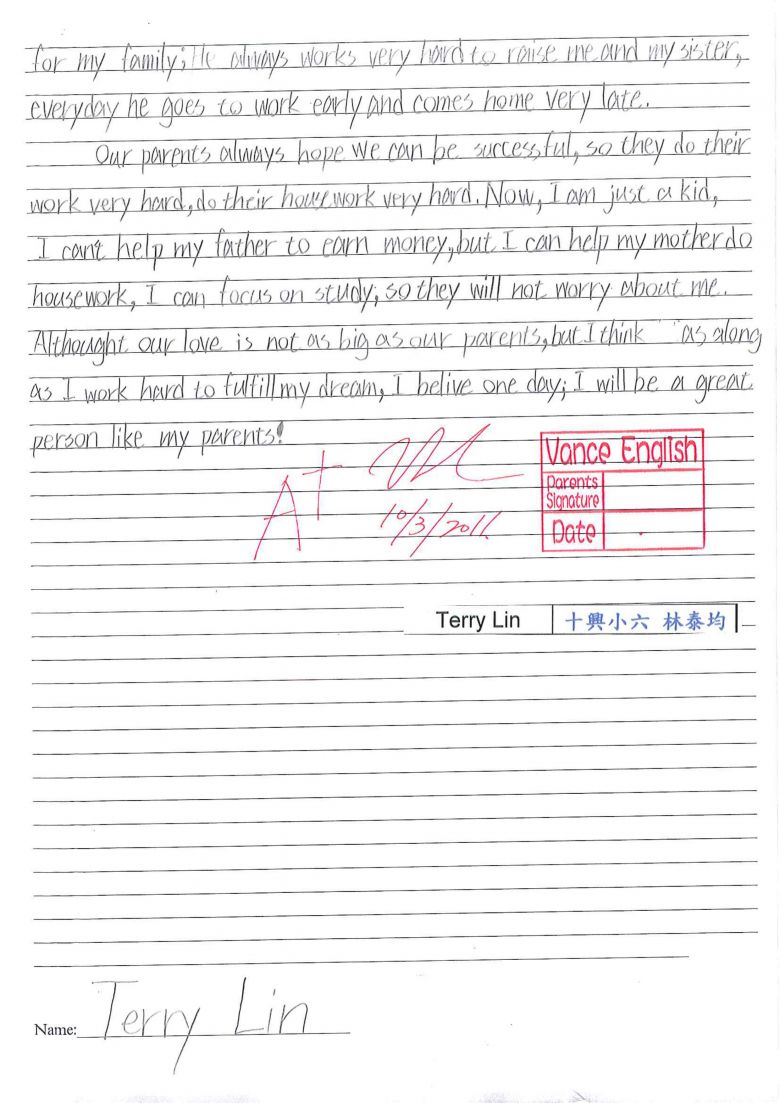 for my family; He always works very hard to raise me and my sister,
everyday he goes to work early and comes home very late.
Our parents always hope we can be successful, so they do their
work very hard, do their housework very hard. Now, I am just a kid,
I can't help my father to earn money, but I can help my mother do
housework, I can focus on study, so they will not worry about me.
Althought our love is not as big as our parents, but I think as along
as I work hard to fulfill my dream, I belive one day; I will be a great
person like my parents!
A+
10/3/2011.
Vance English
Parents
Signature
Date
Terry Lin
十興小六 林泰均
Name: Terry Lin